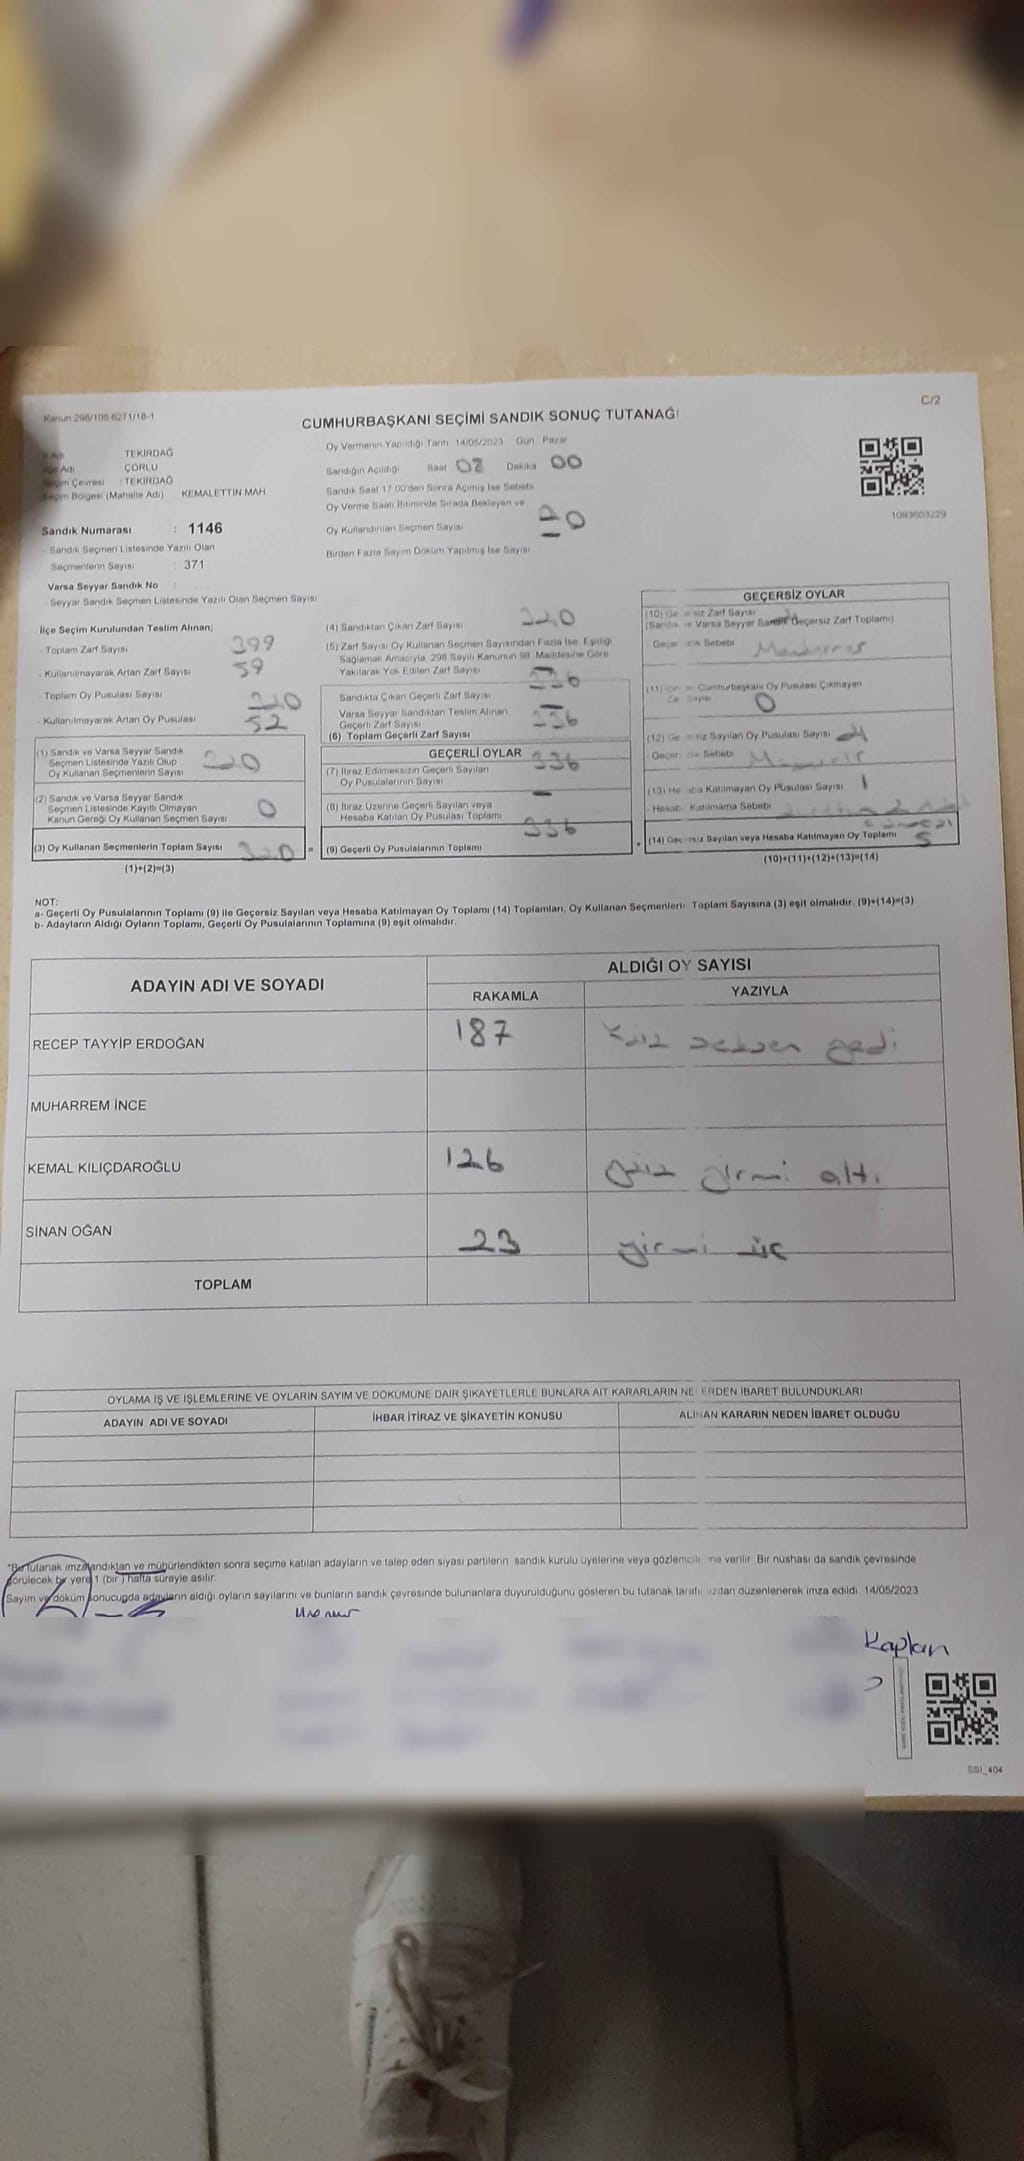 Kanun 298/105 6271/18-1
C/2
CUMHURBAŞKANI SEÇİMİ SANDIK SONUÇ TUTANAĞI
Adı TEKİRDAĞ
Adı ÇORLU
Seçim Çevresi : TEKİRDAĞ
Seçim Bölgesi (Mahalle Adı) KEMALETTİN MAH
Sandık Numarası : 1146
Sandık Seçmen Listesinde Yazılı Olan
Seçmenlerin Sayısı : 371
Varsa Seyyar Sandık No :
Seyyar Sandık Seçmen Listesinde Yazılı Olan Seçmen Sayısı
Oy Vermenin Yapıldığı Tarih 14/05/2023 Gün Pazar
Sandığın Açıldığı Saat 08 Dakika 00
Sandık Saat 17.00'den Sonra Açılmış İse Sebebi
Oy Verme Saati Bitiminde Sırada Bekleyen ve
Oy Kullandırılan Seçmen Sayısı
Birden Fazla Sayım Döküm Yapılmış İse Sayısı
1093603229
İlçe Seçim Kurulundan Teslim Alınan;
- Toplam Zarf Sayısı 399
- Kullanılmayarak Artan Zarf Sayısı 59
- Toplam Oy Pusulası Sayısı
- Kullanılmayarak Artan Oy Pusulası 52
(1) Sandık ve Varsa Seyyar Sandık
Seçmen Listesinde Yazılı Olup
Oy Kullanan Seçmenlerin Sayısı
(2) Sandık ve Varsa Seyyar Sandık
Seçmen Listesinde Kayıtlı Olmayan
Kanun Gereği Oy Kullanan Seçmen Sayısı 0
(3) Oy Kullanan Seçmenlerin Toplam Sayısı =
(1)+(2)=(3)
(4) Sandıktan Çıkan Zarf Sayısı
(5) Zarf Sayısı Oy Kullanan Seçmen Sayısından Fazla İse, Eşitliği
Sağlamak Amacıyla, 298 Sayılı Kanunun 98. Maddesine Göre
Yakılarak Yok Edilen Zarf Sayısı —
Sandıkta Çıkan Geçerli Zarf Sayısı 336
Varsa Seyyar Sandıktan Teslim Alınan
Geçerli Zarf Sayısı —
(6) Toplam Geçerli Zarf Sayısı 336
GEÇERLİ OYLAR
(7) İtiraz Edilmeksizin Geçerli Sayılan
Oy Pusulalarının Sayısı 336
(8) İtiraz Üzerine Geçerli Sayılan veya
Hesaba Katılan Oy Pusulası Toplamı —
(9) Geçerli Oy Pusulalarının Toplamı 336 +
GEÇERSİZ OYLAR
(10) Zarf Sayısı
Varsa Seyyar Sandık Geçersiz Zarf Toplamı)
Sebebi
(11) Cumhurbaşkanı Oy Pusulası Çıkmayan
Sayısı 0
(12) Sayılan Oy Pusulası Sayısı
Sebebi
(13) Katılmayan Oy Pusulası Sayısı 1
Katılmama Sebebi
(14) Sayılan veya Hesaba Katılmayan Oy Toplamı 5
(10)+(11)+(12)+(13)=(14)
NOT:
a- Geçerli Oy Pusulalarının Toplamı (9) ile Geçersiz Sayılan veya Hesaba Katılmayan Oy Toplamı (14) Toplamları, Oy Kullanan Seçmenlerin Toplam Sayısına (3) eşit olmalıdır. (9)+(14)=(3)
b- Adayların Aldığı Oyların Toplamı, Geçerli Oy Pusulalarının Toplamına (9) eşit olmalıdır.
ADAYIN ADI VE SOYADI ALDIĞI OY SAYISI
RAKAMLA YAZIYLA
RECEP TAYYİP ERDOĞAN 187 Yüz seksen yedi
MUHARREM İNCE
KEMAL KILIÇDAROĞLU 126 yüz yirmi altı
SİNAN OĞAN 23 yirmi üç
TOPLAM
OYLAMA İŞ VE İŞLEMLERİNE VE OYLARIN SAYIM VE DÖKÜMÜNE DAİR ŞİKAYETLERLE BUNLARA AİT KARARLARIN NELERDEN İBARET BULUNDUKLARI
ADAYIN ADI VE SOYADI İHBAR İTİRAZ VE ŞİKAYETİN KONUSU ALINAN KARARIN NEDEN İBARET OLDUĞU
*Bu tutanak imzalandıktan ve mühürlendikten sonra seçime katılan adayların ve talep eden siyasi partilerin sandık kurulu üyelerine veya gözlemcilerine verilir. Bir nüshası da sandık çevresinde
görülecek bir yere 1 (bir) hafta süreyle asılır.
Sayım ve döküm sonucunda adayların aldığı oyların sayılarını ve bunların sandık çevresinde bulunanlara duyurulduğunu gösteren bu tutanak tarafımızdan düzenlenerek imza edildi. 14/05/2023
Kaplan
SSI_404